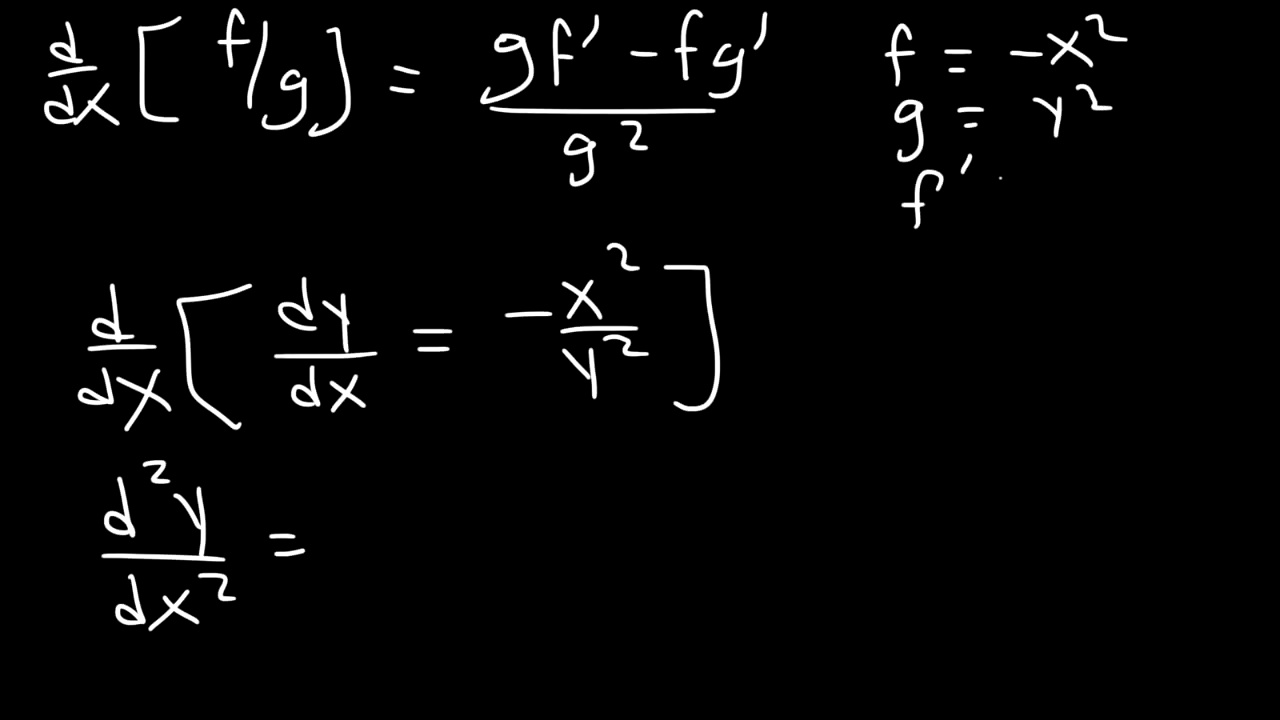 d/dx [ f/g ] = (gf' - fg') / g²
f = -x²
g = y²
f'
d/dx [ dy/dx = -x²/y² ]
d²y/dx² =